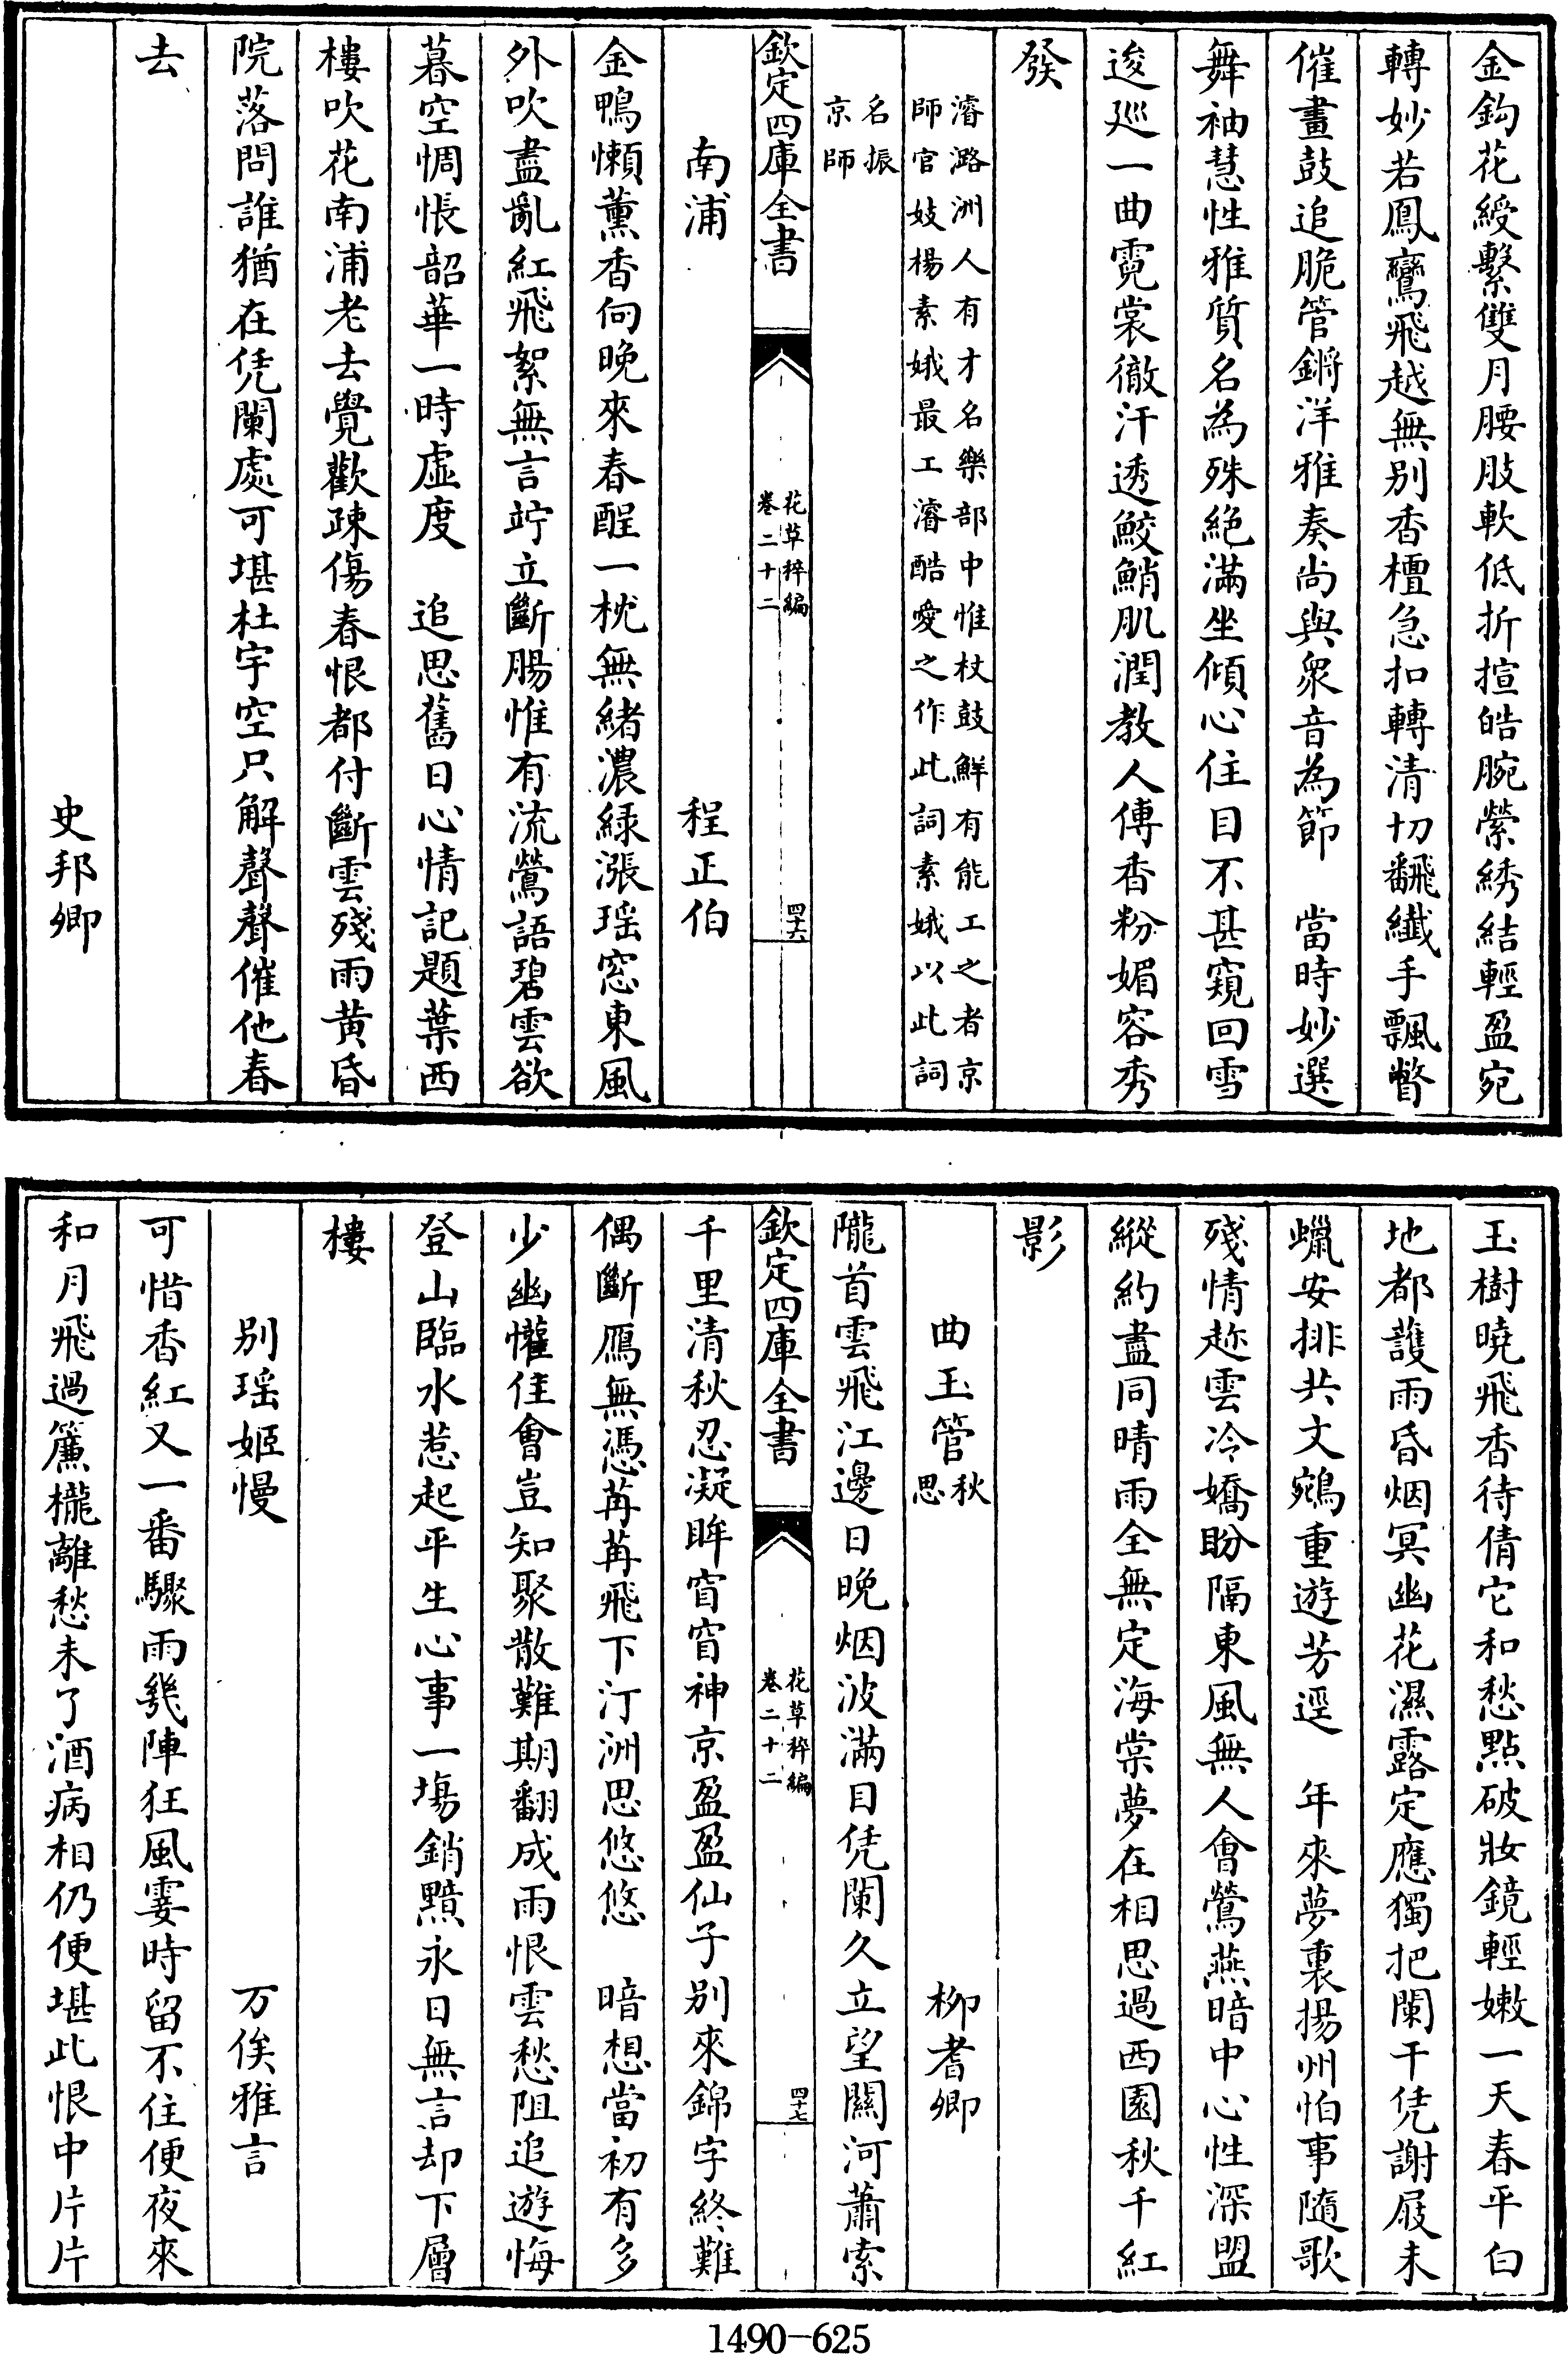 金鈎花綬繫雙月腰肢軟低折揎皓腕縈綉結輕盈宛
轉妙若鳳鸞飛越無别香檀急扣轉清切翻纖手飄瞥
催畫鼓追脆管鏘洋雅奏尚與衆音為節　當時妙選
舞袖慧性雅質名為殊絶滿坐傾心住目不甚窺回雪
逡廵一曲霓裳徹汗透鮫鮹肌潤教人傅香粉媚容秀
發
濬潞洲人有才名樂部中惟杖鼓鮮有能工之者京
師官妓楊素娥最工濬酷愛之作此詞素娥以此詞
名振
京師
欽定四庫全書
花草稡編
卷二十二
四十六
南浦　程正伯
金鴨懶薰香向晚來春酲一枕無緒濃緑漲瑶窓東風
外吹盡亂紅飛絮無言竚立斷腸惟有流鶯語碧雲欲
暮空惆悵韶華一時虚度　追思舊日心情記題葉西
樓吹花南浦老去覺歡疎傷春恨都付斷雲殘雨黄昏
院落問誰猶在凭闌處可堪杜宇空只解聲聲催他春
去
史邦卿
玉樹曉飛香待倩它和愁點破妝鏡輕嫩一天春平白
地都護雨昏烟冥幽花濕露定應獨把闌干凭謝屐未
蠟安排共文鵷重遊芳逕　年來夢裏揚州怕事隨歌
殘情趂雲冷嬌盼隔東風無人會鶯燕暗中心性深盟
縱約盡同晴雨全無定海棠夢在相思過西園秋千紅
影
曲玉管秋思　柳耆卿
隴首雲飛江邊日晚烟波滿目凭闌久立望關河蕭索
欽定四庫全書
花草稡編
卷二十二
四十七
千里清秋忍凝眸窅窅神京盈盈仙子别來錦字終難
偶斷鴈無憑苒苒飛下汀洲思悠悠　暗想當初有多
少幽懽佳會豈知聚散難期翻成雨恨雲愁阻追遊悔
登山臨水惹起平生心事一塲銷黯永日無言却下層
樓
别瑶姬慢　万俟雅言
可惜香紅又一番驟雨幾陣狂風霎時留不住便夜來
和月飛過簾櫳離愁未了酒病相仍便堪此恨中片片
1490—625